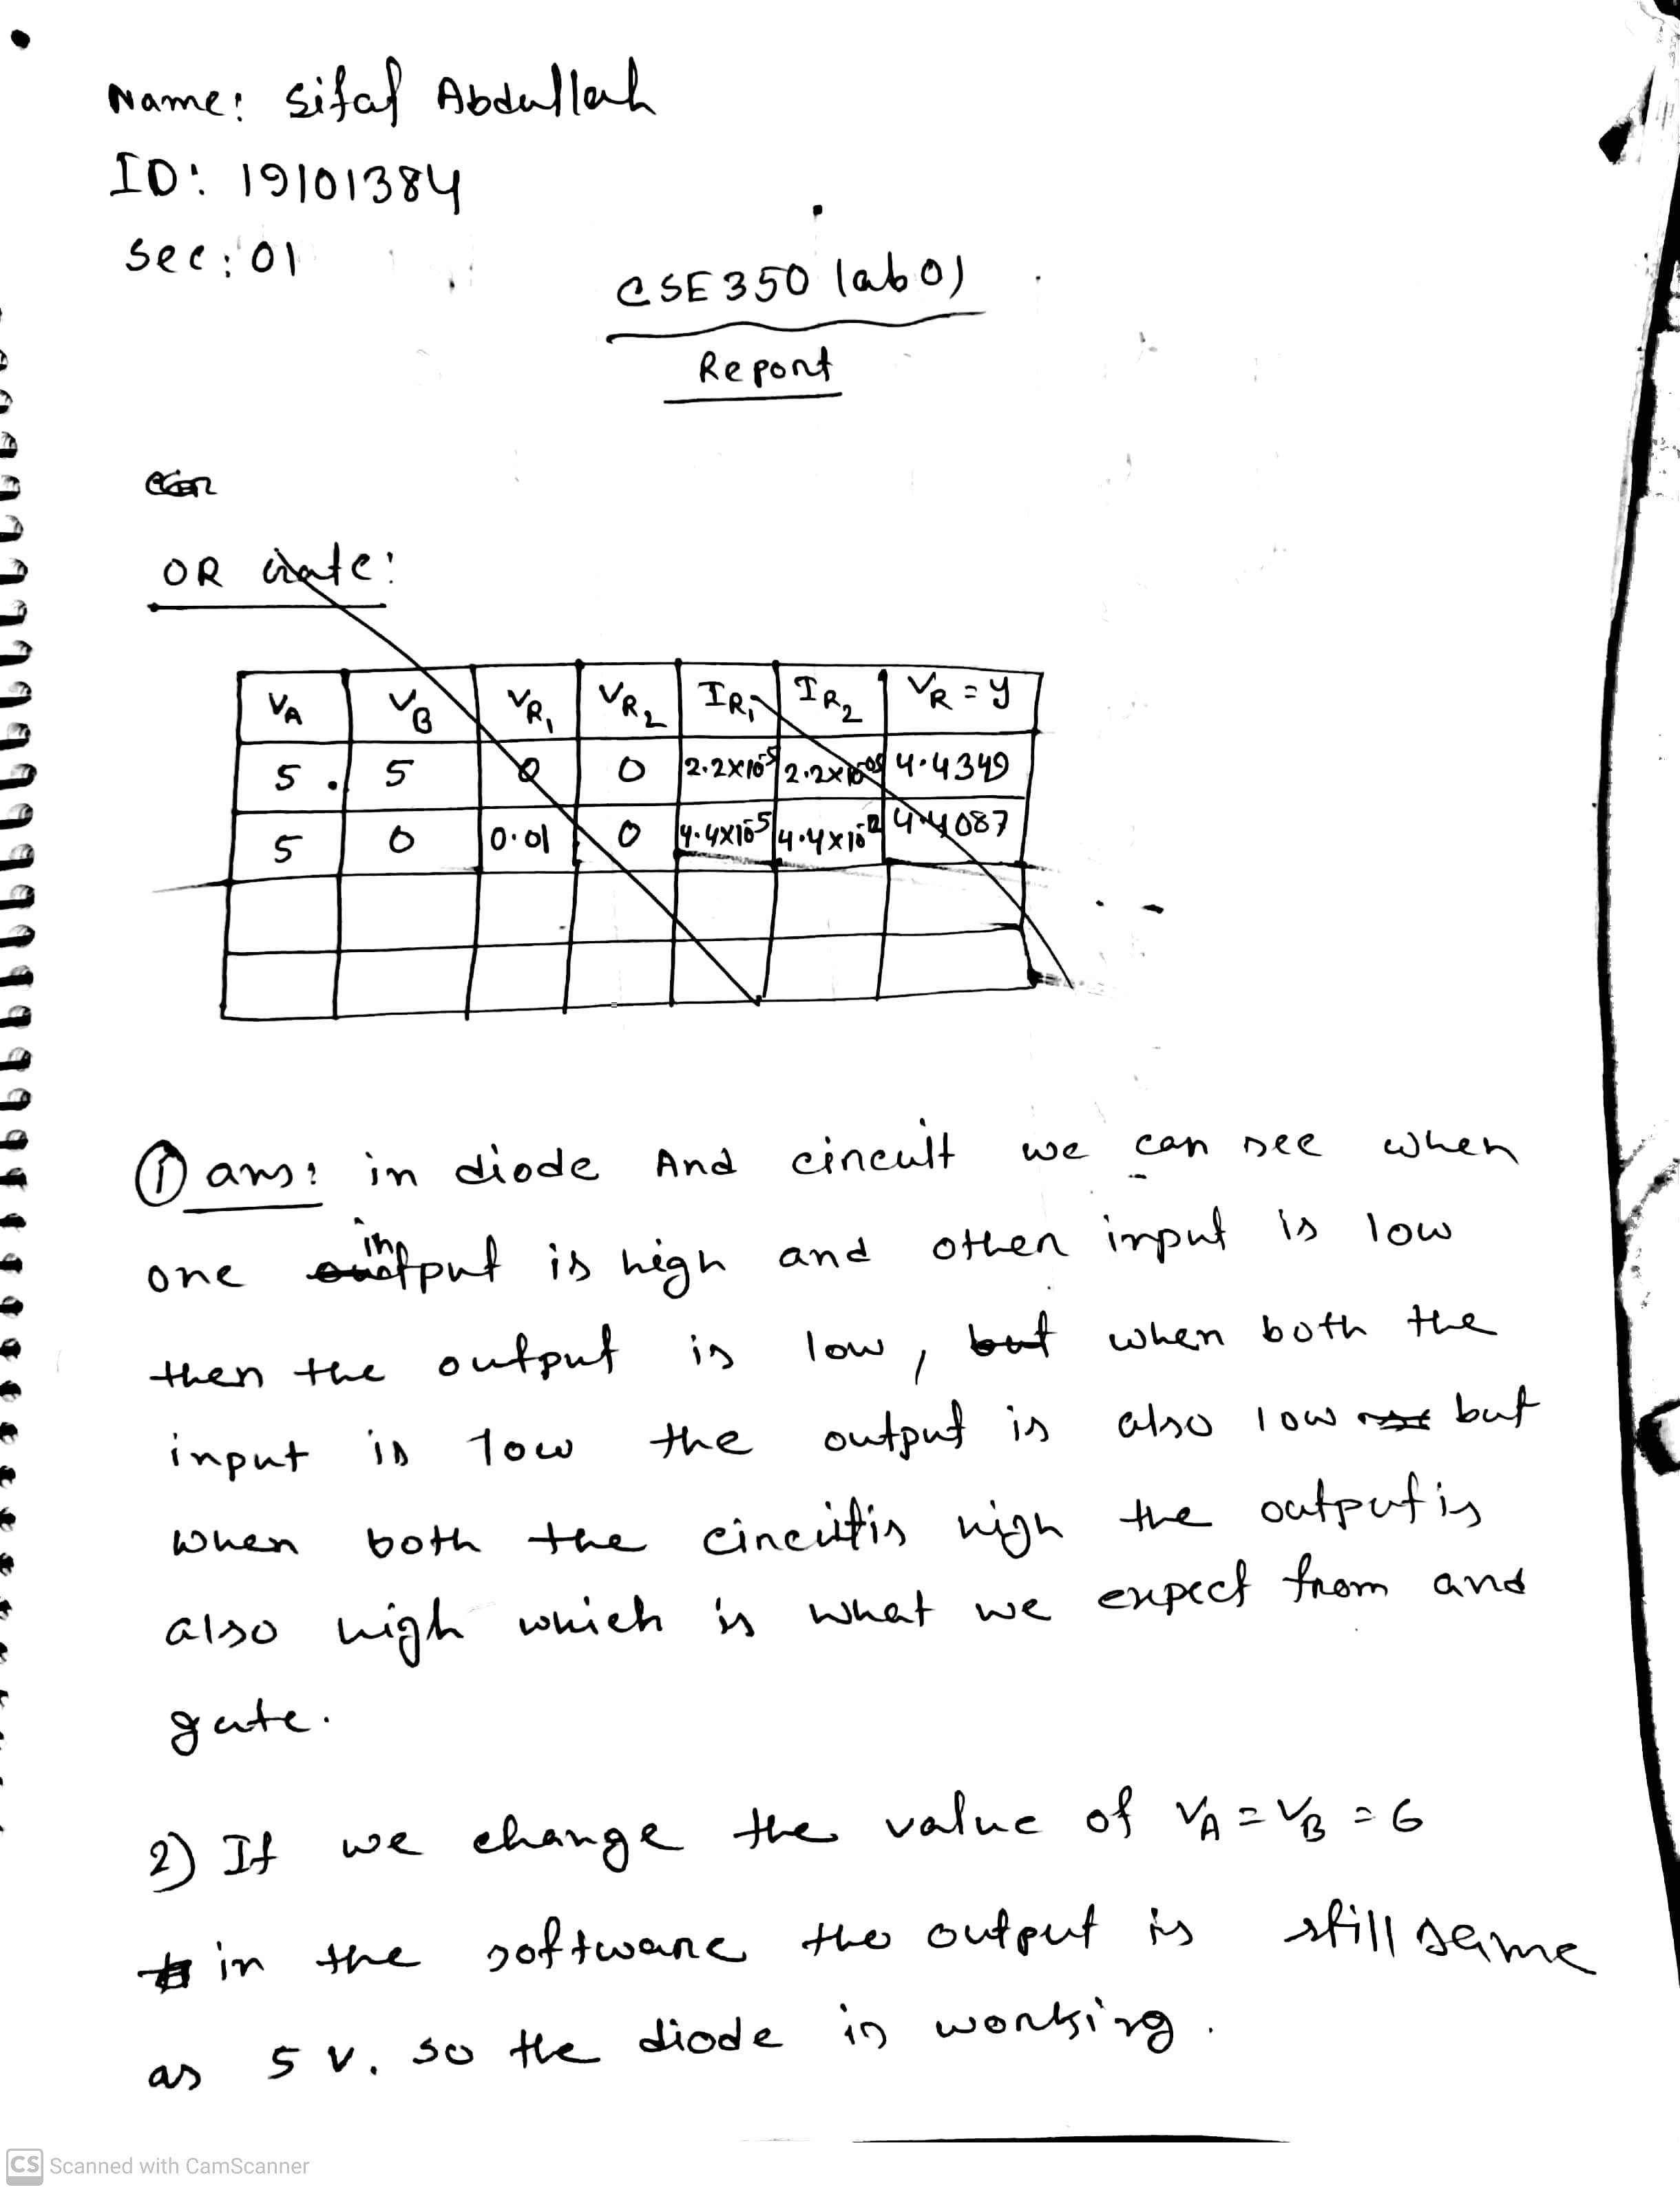 Name: Sifat Abdullah
ID: 19101384
Sec: 01
CSE350 lab01
Report
OR Gate:
VA VB VR1 VR2 IR1 IR2 VR = y
5 5 0 0 2.2×10^-5 2.2×10^-05 4.4349
5 0 0.01 0 4.4×10^-5 4.4×10^-12 4.4087
① ans: in diode And circuit we can see when
one input is high and other input is low
then the output is low, but when both the
input is low the output is also low but
when both the circuit is high the output is
also high which is what we expect from and
gate.
2) If we change the value of VA = VB = 6
in the software the output is still same
as 5 V. so the diode is working.
CS Scanned with CamScanner